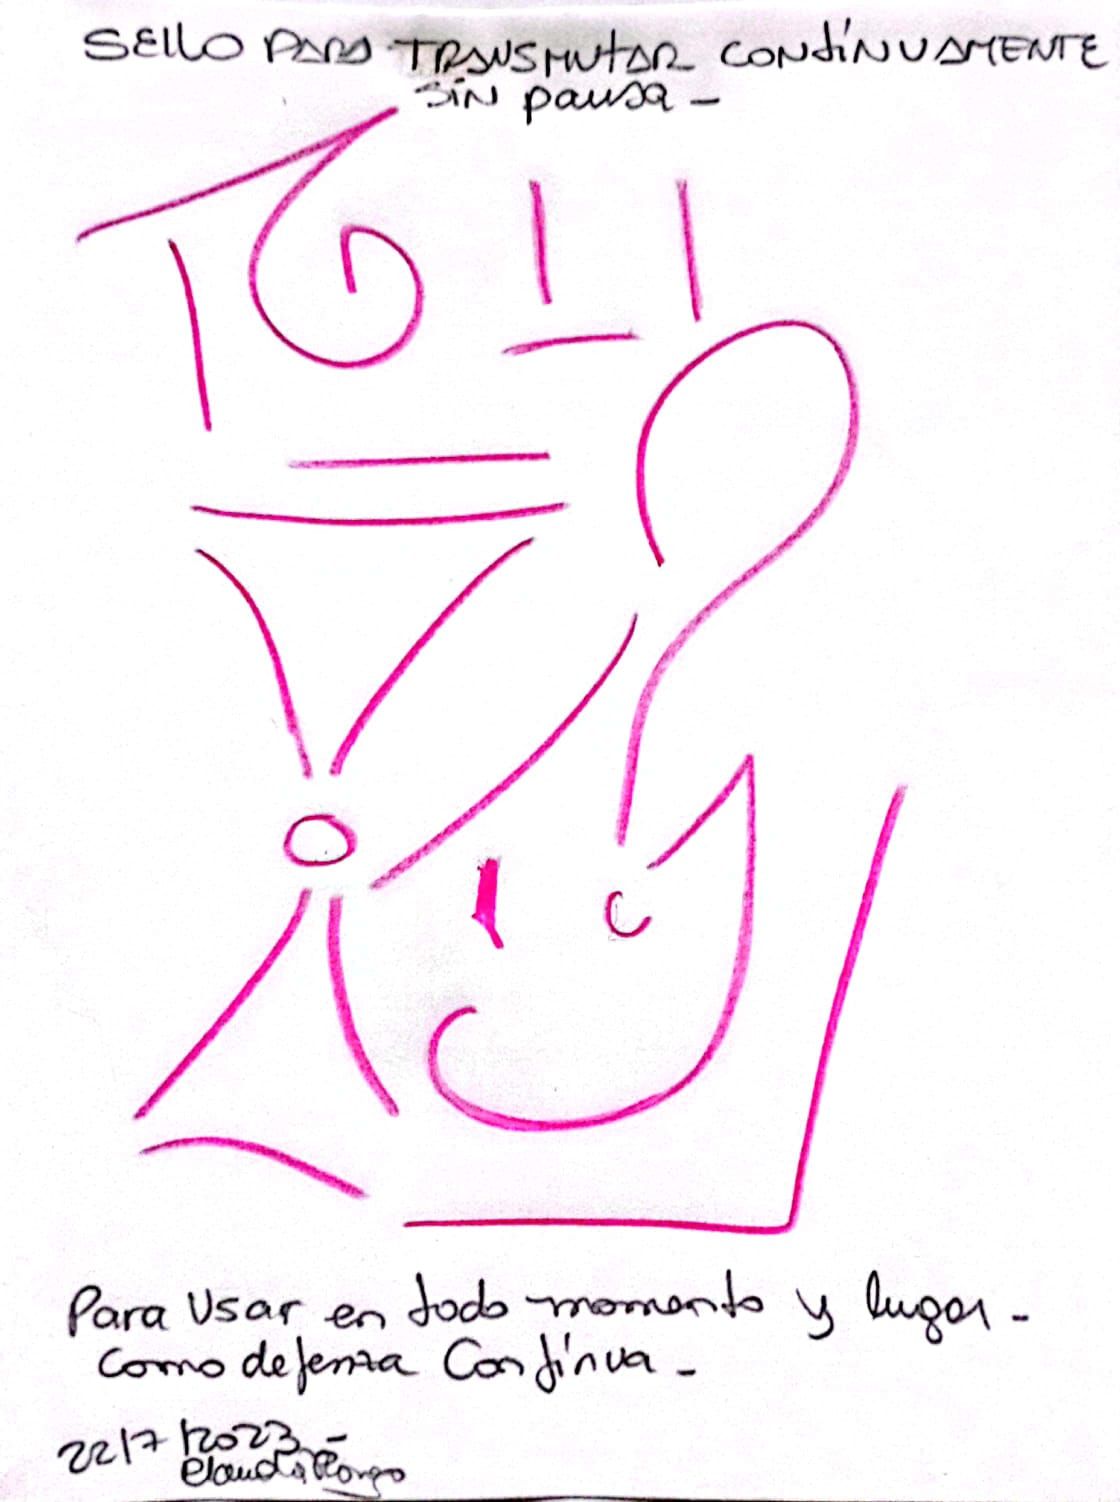 SELLO PARA TRANSMUTAR CONTÍNUAMENTE
SIN pausa -
Para Usar en todo momento y lugar -
como defenza Contínua -
22/7/2023 -
Claudia